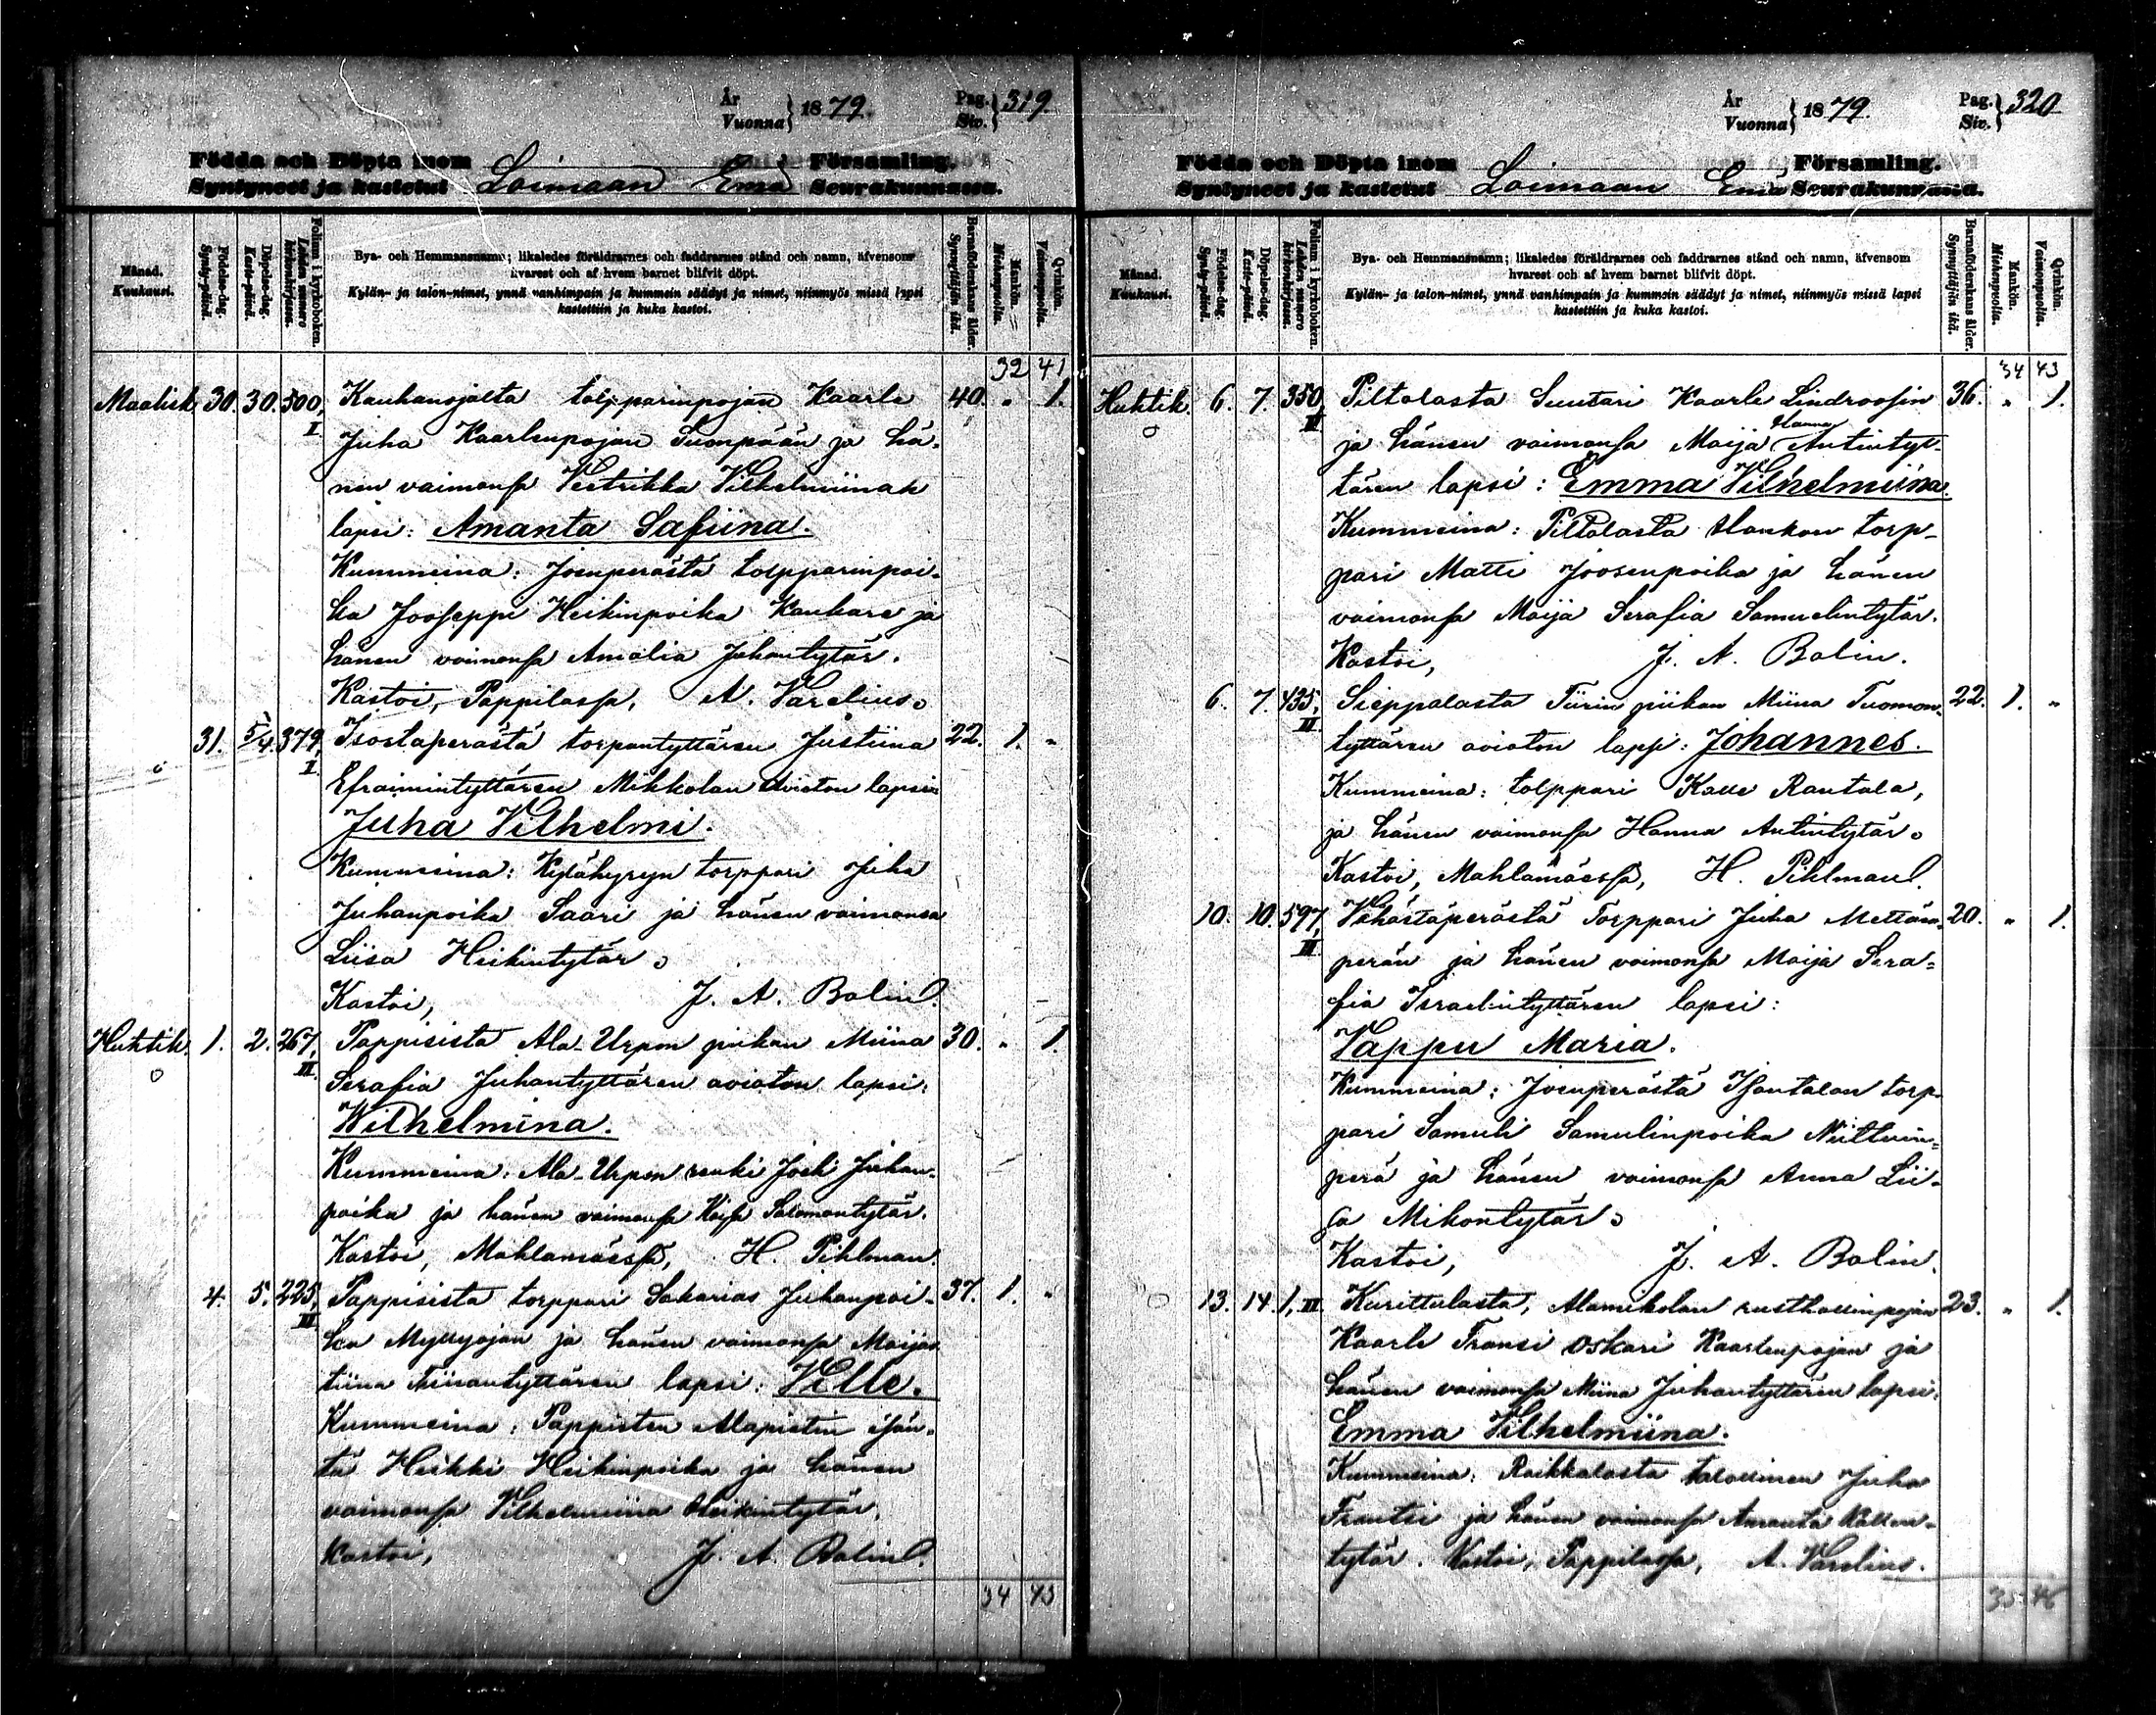 År
Vuonna } 1879.
Pag.
Siv. } 319.
Födda och Döpta inom Församling.
Syntyneet ja kastetut Loimaan Emä Seurakunnassa.
Månad.
Kuukausi.
Födelse-dag.
Synty-päivä.
Döpelse-dag.
Kaste-päivä.
Folium i kyrkoboken.
Lehden numero kirkonkirjassa.
Bya- och Hemmansnamn; likaledes föräldrarnes och faddrarnes stånd och namn, äfvensom
hvarest och af hvem barnet blifvit döpt.
Kylän- ja talon-nimet, ynnä vanhimpain ja kummein säädyt ja nimet, niinmyös missä lapsi
kastettiin ja kuka kastoi.
Barnaföderskans ålder.
Synnyttäjän ikä.
Mankön.
Miehenpuolia.
Qvinkön.
Vaimonpuolia.
32 41
Maalisk. 30. 30. 500, I Kauhanojalta tolpparinpojan Kaarle 40. " 1.
Juha Kaarlenpojan Suonpään ja hä-
nen vaimonsa Vestrikka Vilhelmiinan
lapsi: Amanta Safiina.
Kummeina: Joenperästä tolpparinpoi-
ka Jooseppi Heikinpoika Kankare ja
hänen vaimonsa Amalia Juhantytär.
Kastoi, Pappilassa, A. Varelius.
31. 5/4. 379, I Isostaperästä torpantyttären Justiina 22. 1. "
Efraimintyttären Mikkolan aviaton lapsi:
Juha Vilhelmi.
Kummeina: Kylähyryn torppari Juha
Juhanpoika Saari ja hänen vaimonsa
Liisa Heikintytär.
Kastoi, J. A. Bolin.
Huhtik. 1. 2. 267, II Pappisista Ala-Urpon piikan Miina 30. " 1.
Serafia Juhantyttären aviaton lapsi:
Wilhelmina.
Kummeina: Ala-Urpon renki Josk Juhan-
poika ja hänen vaimonsa Kaisa Salomontytär.
Kastoi, Mahlamäessä, H. Pihlman.
4. 5. 225, III Pappisista torppari Sakarias Juhanpoi- 37. 1. "
ka Myllyojan ja hänen vaimonsa Maijas
tiina lapsi: Ville.
Kummeina: Pappisten Alapistin isän-
tä Heikki Heikinpoika ja hänen
vaimonsa Vilhelmiina Heikintytär.
Kastoi, J. A. Bolin.
34 43
År
Vuonna } 1879.
Pag.
Siv. } 320
Födda och Döpta inom Församling.
Syntyneet ja kastetut Loimaan Emä Seurakunnassa.
Månad.
Kuukausi.
Födelse-dag.
Synty-päivä.
Döpelse-dag.
Kaste-päivä.
Folium i kyrkoboken.
Lehden numero kirkonkirjassa.
Bya- och Hemmansnamn; likaledes föräldrarnes och faddrarnes stånd och namn, äfvensom
hvarest och af hvem barnet blifvit döpt.
Kylän- ja talon-nimet, ynnä vanhimpain ja kummein säädyt ja nimet, niinmyös missä lapsi
kastettiin ja kuka kastoi.
Barnaföderskans ålder.
Synnyttäjän ikä.
Mankön.
Miehenpuolia.
Qvinkön.
Vaimonpuolia.
34 43
Huhtik. 6. 7. 350, II Piltolasta Suutari Kaarle Lindroosin 36. " 1.
ja hänen vaimonsa Maija Hanna Antintyt-
tären lapsi: Emma Vilhelmiina.
Kummeina: Piltolasta Hankan torp-
pari Matti Joosenpoika ja hänen
vaimonsa Maija Serafia Samuelintytär.
Kastoi, J. A. Bolin.
6. 7. 435, III Sieppalasta Tiirin piikan Miina Tuomon- 22. 1. "
tyttären aviaton lapsi: Johannes.
Kummeina: tolppari Kalle Rantala,
ja hänen vaimonsa Hanna Antintytär.
Kastoi, Mahlamäessä, H. Pihlman.
10. 10. 597, II Vähästäperästä Torppari Juha Mettän- 20. " 1.
perän ja hänen vaimonsa Maija Sera-
fia Israelintyttären lapsi:
Vappu Maria.
Kummeina: Joenperästä Isontalon torp-
pari Samuli Samulinpoika Niittuin-
perä ja hänen vaimonsa Anna Lii-
sa Mikontytär.
Kastoi, J. A. Bolin.
13. 14. 1, III Kurittulasta, Alamikolan rusthollinpojan 23. " 1.
Kaarle Fransi Oskari Kaarlenpojan ja
hänen vaimonsa Miina Juhantyttären lapsi:
Emma Vilhelmiina.
Kummeina: Raikkolasta talollinen Juha
Frantsi ja hänen vaimonsa Amanta Kallen-
tytär. Kastoi, Pappilassa, A. Varelius.
35 46